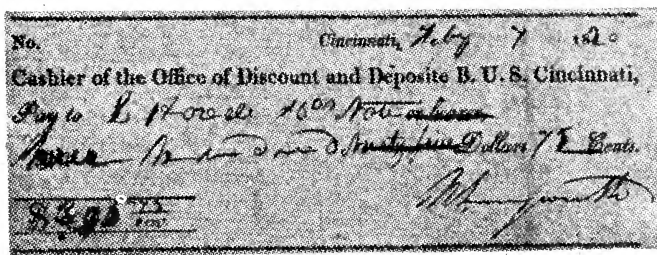 No. Cincinnati, Feby 7 1820
Cashier of the Office of Discount and Deposite B. U. S. Cincinnati,
Pay to Note or bearer
Hundred and Ninety five Dollars 75 Cents.
$ 95 75